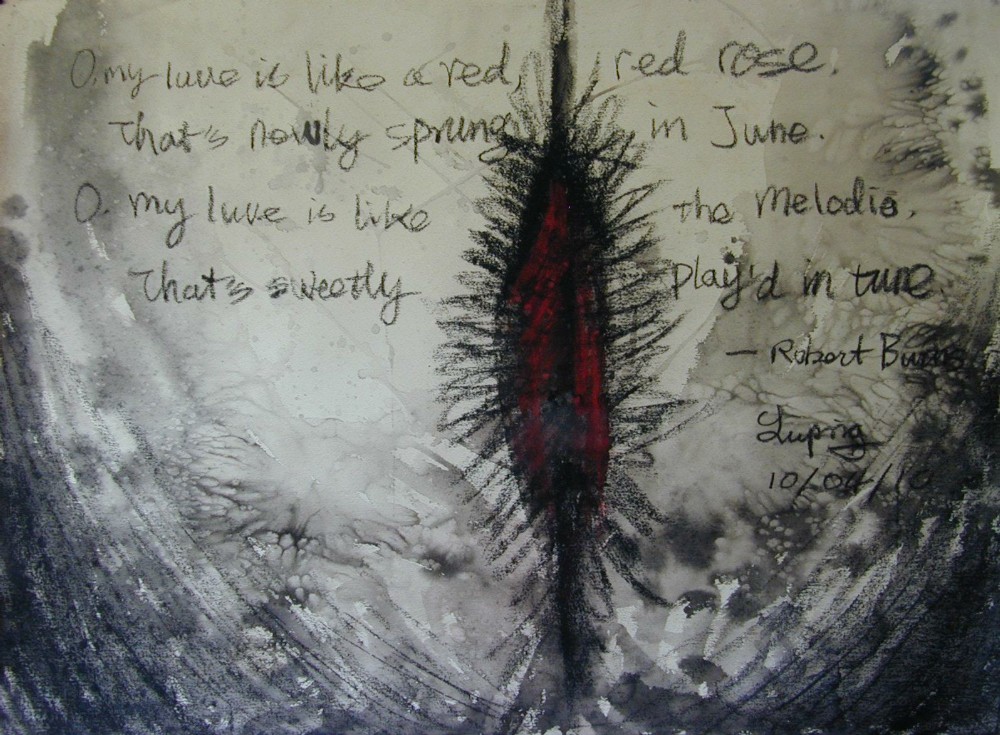 O. my luve is like a red, red rose.
That's newly sprung in June.
O. my luve is like the Melodie,
That's sweetly play'd in tune.
— Robert Burns
Luping
10/04/10